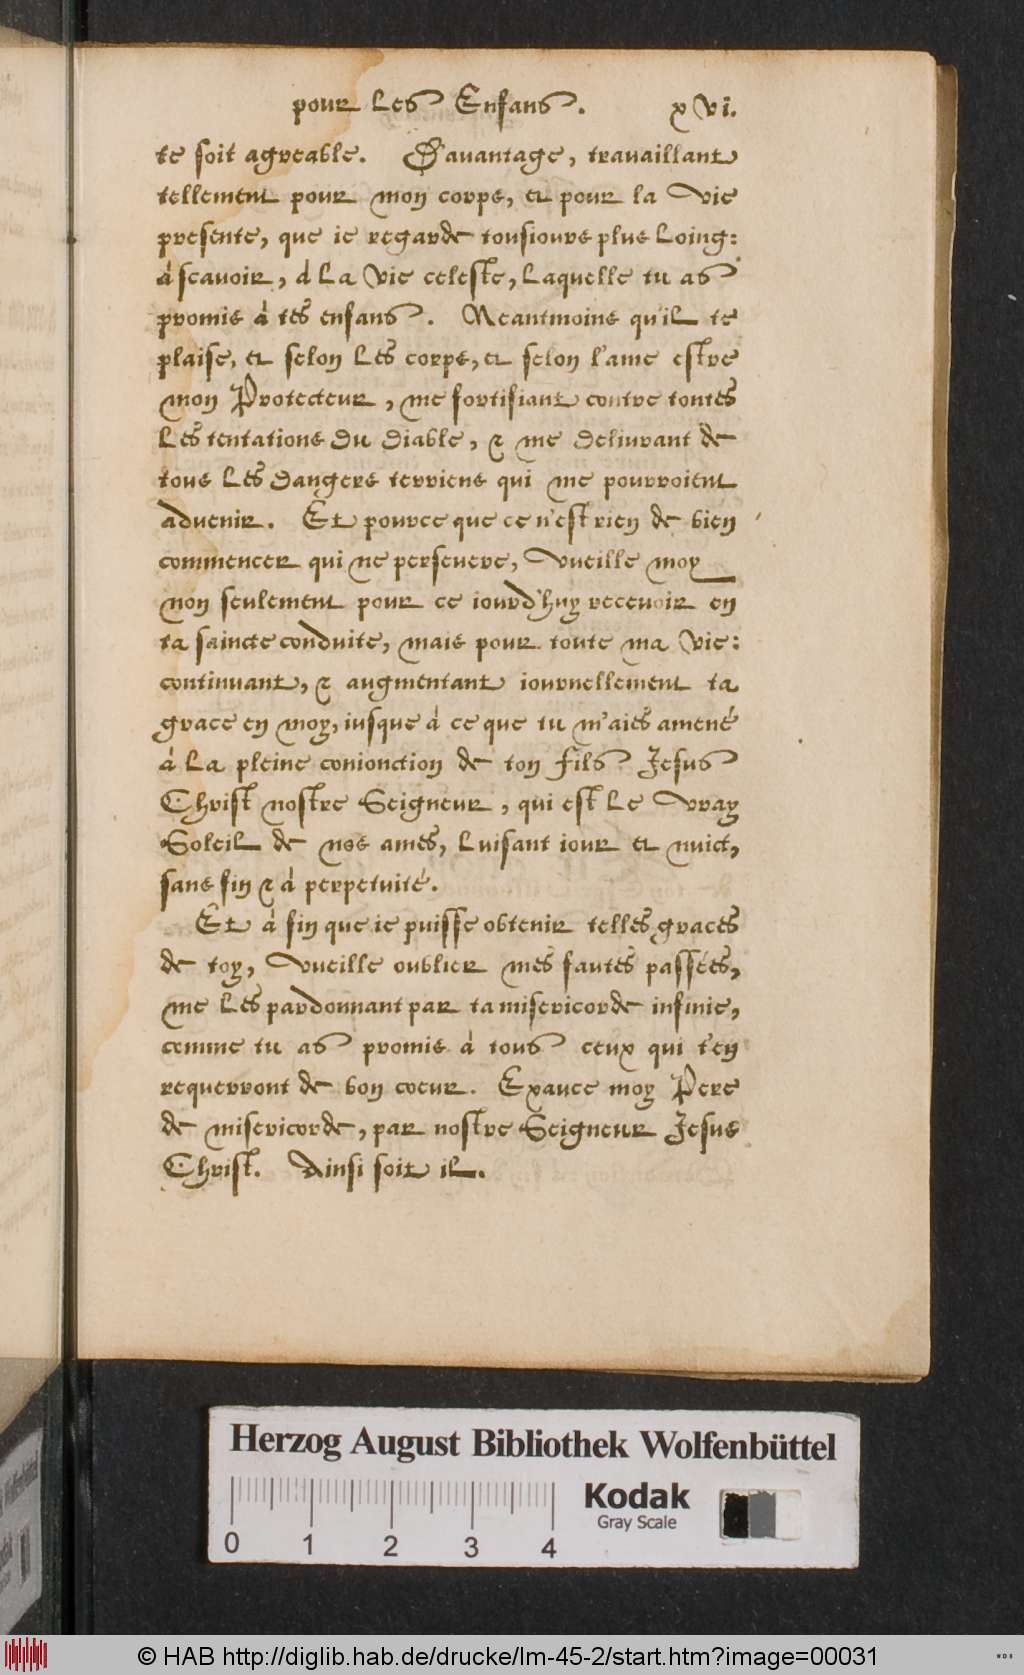 pour les Enfans. xvi.
te soit agreable. D'auantage, trauaillant
tellement pour mon corps, et pour la vie
presente, que ie regarde tousiours plus loing:
à scauoir, à la vie celeste, laquelle tu as
promis à tes enfans. Neantmoins qu'il te
plaise, et selon les corps, et selon l'ame estre
mon Protecteur, me fortifiant contre toutes
les tentations du diable, & me deliurant de
tous les dangers terriens qui me pourroient
aduenir. Et pource que ce n'est rien de bien
commencer qui ne perseuere, vueille moy
non seulement pour ce iourd'huy receuoir en
ta saincte conduite, mais pour toute ma vie:
continuant, & augmentant iournellement ta
grace en moy, iusque à ce que tu m'aies amené
à la pleine conionction de ton fils Jesus
Christ nostre Seigneur, qui est le vray
Soleil de nos ames, luisant iour et nuict,
sans fin & à perpetuité.
Et à fin que ie puisse obtenir telles graces
de toy, vueille oublier mes fautes passées,
me les pardonnant par ta misericorde infinie,
comme tu as promis à tous ceux qui t'en
requerront de bon coeur. Exauce moy Pere
de misericorde, par nostre Seigneur Jesus
Christ. Ainsi soit il.
Herzog August Bibliothek Wolfenbüttel
0 1 2 3 4
Kodak
Gray Scale
© HAB http://diglib.hab.de/drucke/lm-45-2/start.htm?image=00031